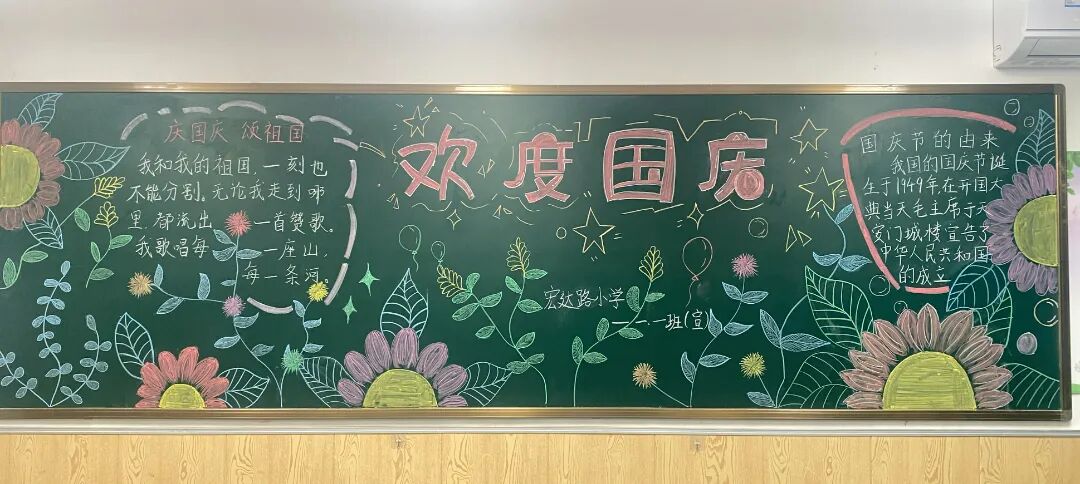 庆国庆 颂祖国
我和我的祖国,一刻也
不能分割。无论我走到哪
里,都流出一首赞歌。
我歌唱每一座山,
每一条河。
欢度国庆
宏达路小学
一.一班(宣)
国庆节的由来
我国的国庆节诞
生于1949年在开国大
典当天毛主席于天
安门城楼宣告了
中华人民共和国
的成立